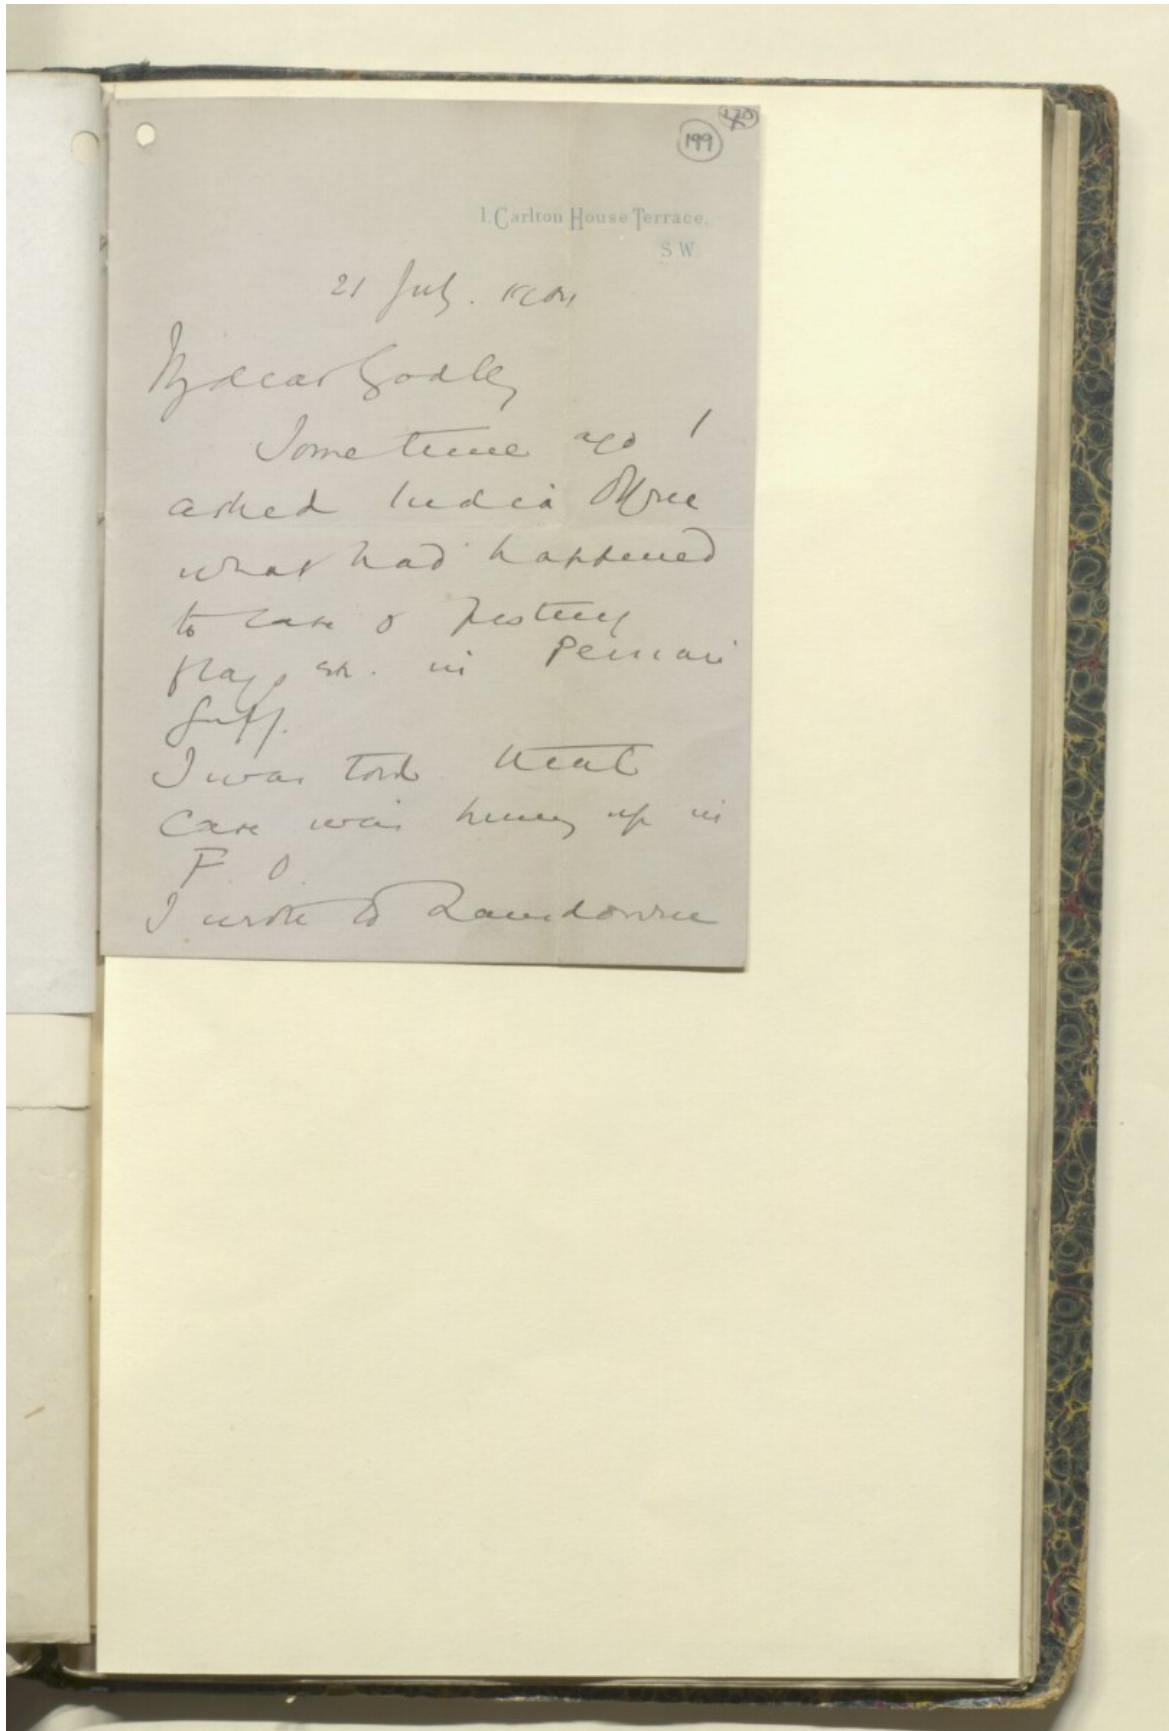 199
1, Carlton House Terrace,
S.W.
21 July. 1904
My dear Godley
Some time ago I
asked India Office
what had happened
to case of
flags in Persian
Gulf.
I was told that
case was hung up in
F. O.
I wrote to Lansdowne